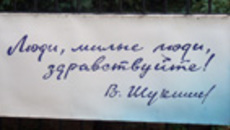 Люди, милые люди,
здравствуйте!
В. Шукшин